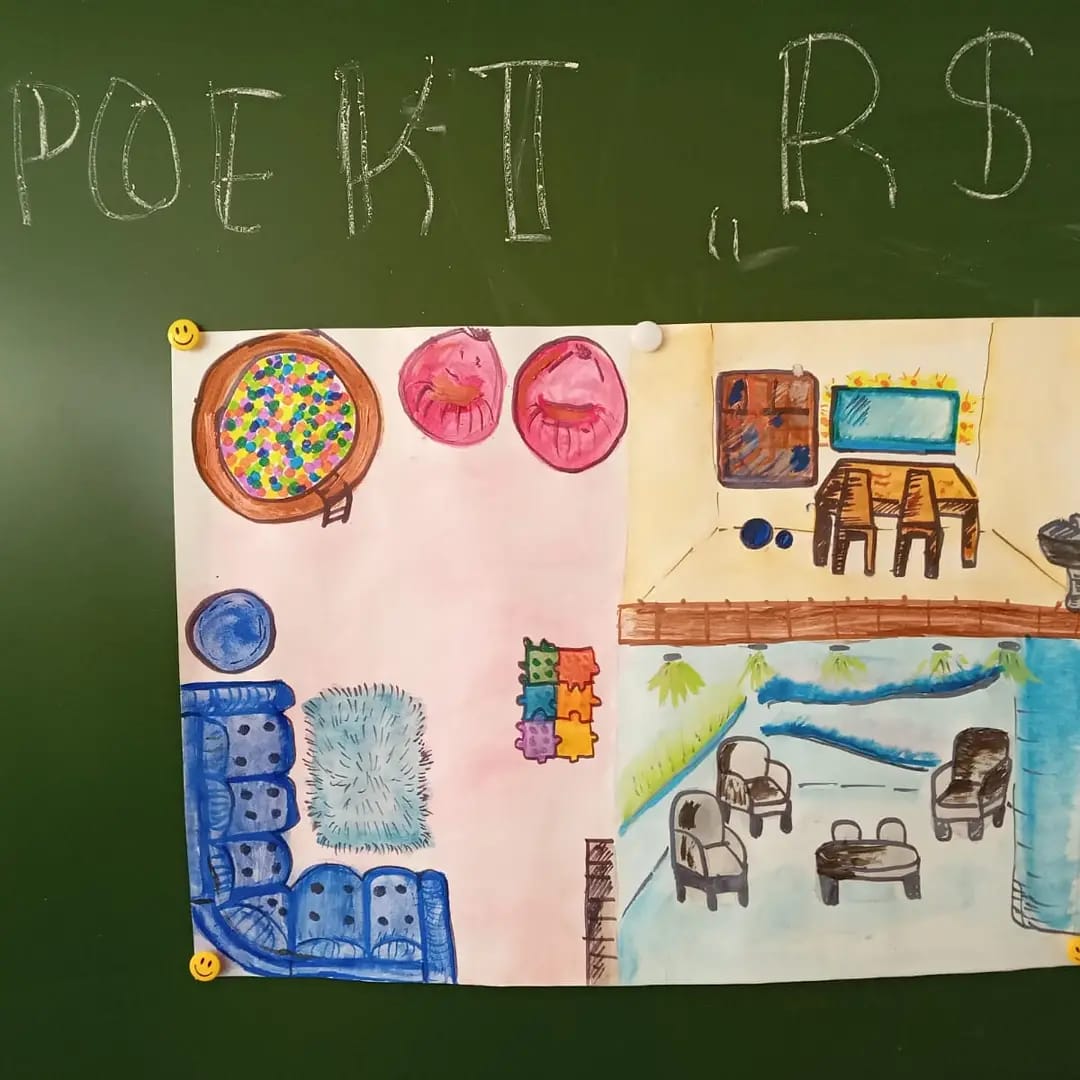 РОЕКТ „RS